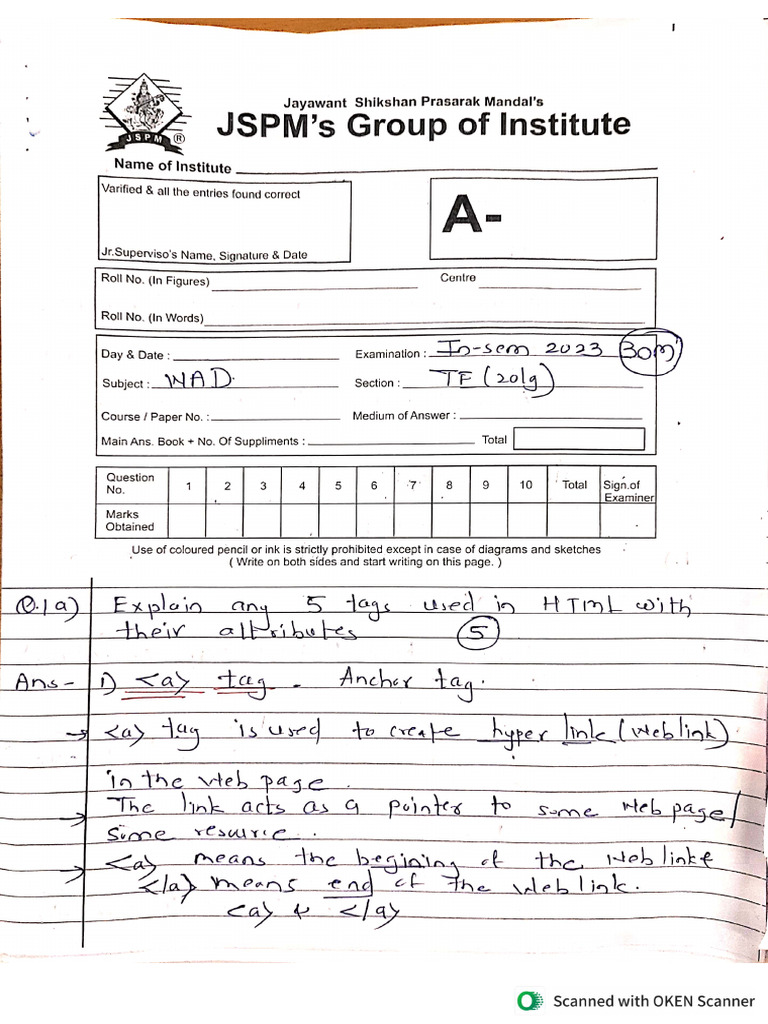 1
Jayawant Shikshan Prasarak Mandal's
JSPM's Group of Institute
JSPM ®
Name of Institute
Varified & all the entries found correct
A-
Jr.Superviso's Name, Signature & Date
Roll No. (In Figures) Centre
Roll No. (In Words)
Day & Date : Examination : In-sem 2023 30m
Subject : WAD. Section : TF (2019)
Course / Paper No. : Medium of Answer :
Main Ans. Book + No. Of Suppliments : Total
Question No. 1 2 3 4 5 6 7 8 9 10 Total Sign.of Examiner
Marks Obtained
Use of coloured pencil or ink is strictly prohibited except in case of diagrams and sketches
( Write on both sides and start writing on this page. )
Q.1a) Explain any 5 tags used in HTML with
their attributes 5
Ans - 1) <a> tag - Anchor tag.
→ <a> tag is used to create hyper link (Web link)
in the web page.
→ The link acts as a pointer to some web page/
some resource.
→ <a> means the begining of the web link &
</a> means end of the web link.
<a> & </a>
Scanned with OKEN Scanner